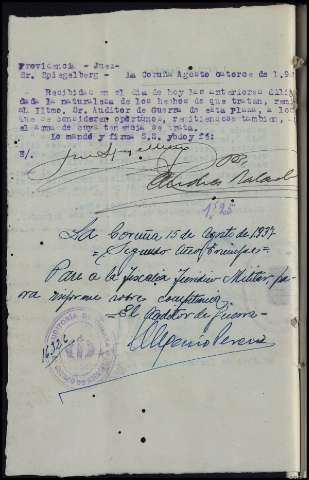 Providencia - Juez-
Sr. Spiegelberg - La Coruña Agosto catorce de 1.93
Recibidas en el día de hoy las anteriores dili
dada la naturaleza de los hechos de que tratan, remi
al Iltmo. Sr. Auditor de Guerra de esta plaza, a los
que se consideren oportunos, remitiendose tambien,
el arma de cuya tenencia se trata.
Lo mandó y firma S.S. ydoy fé:
E/.
La Coruña 15 de Agosto de 1937
= Segundo Año Triunfal =
Pase a la Fiscalía Jurídico Militar, pa-
ra informe sobre competencia.
= El Auditor de Guerra =